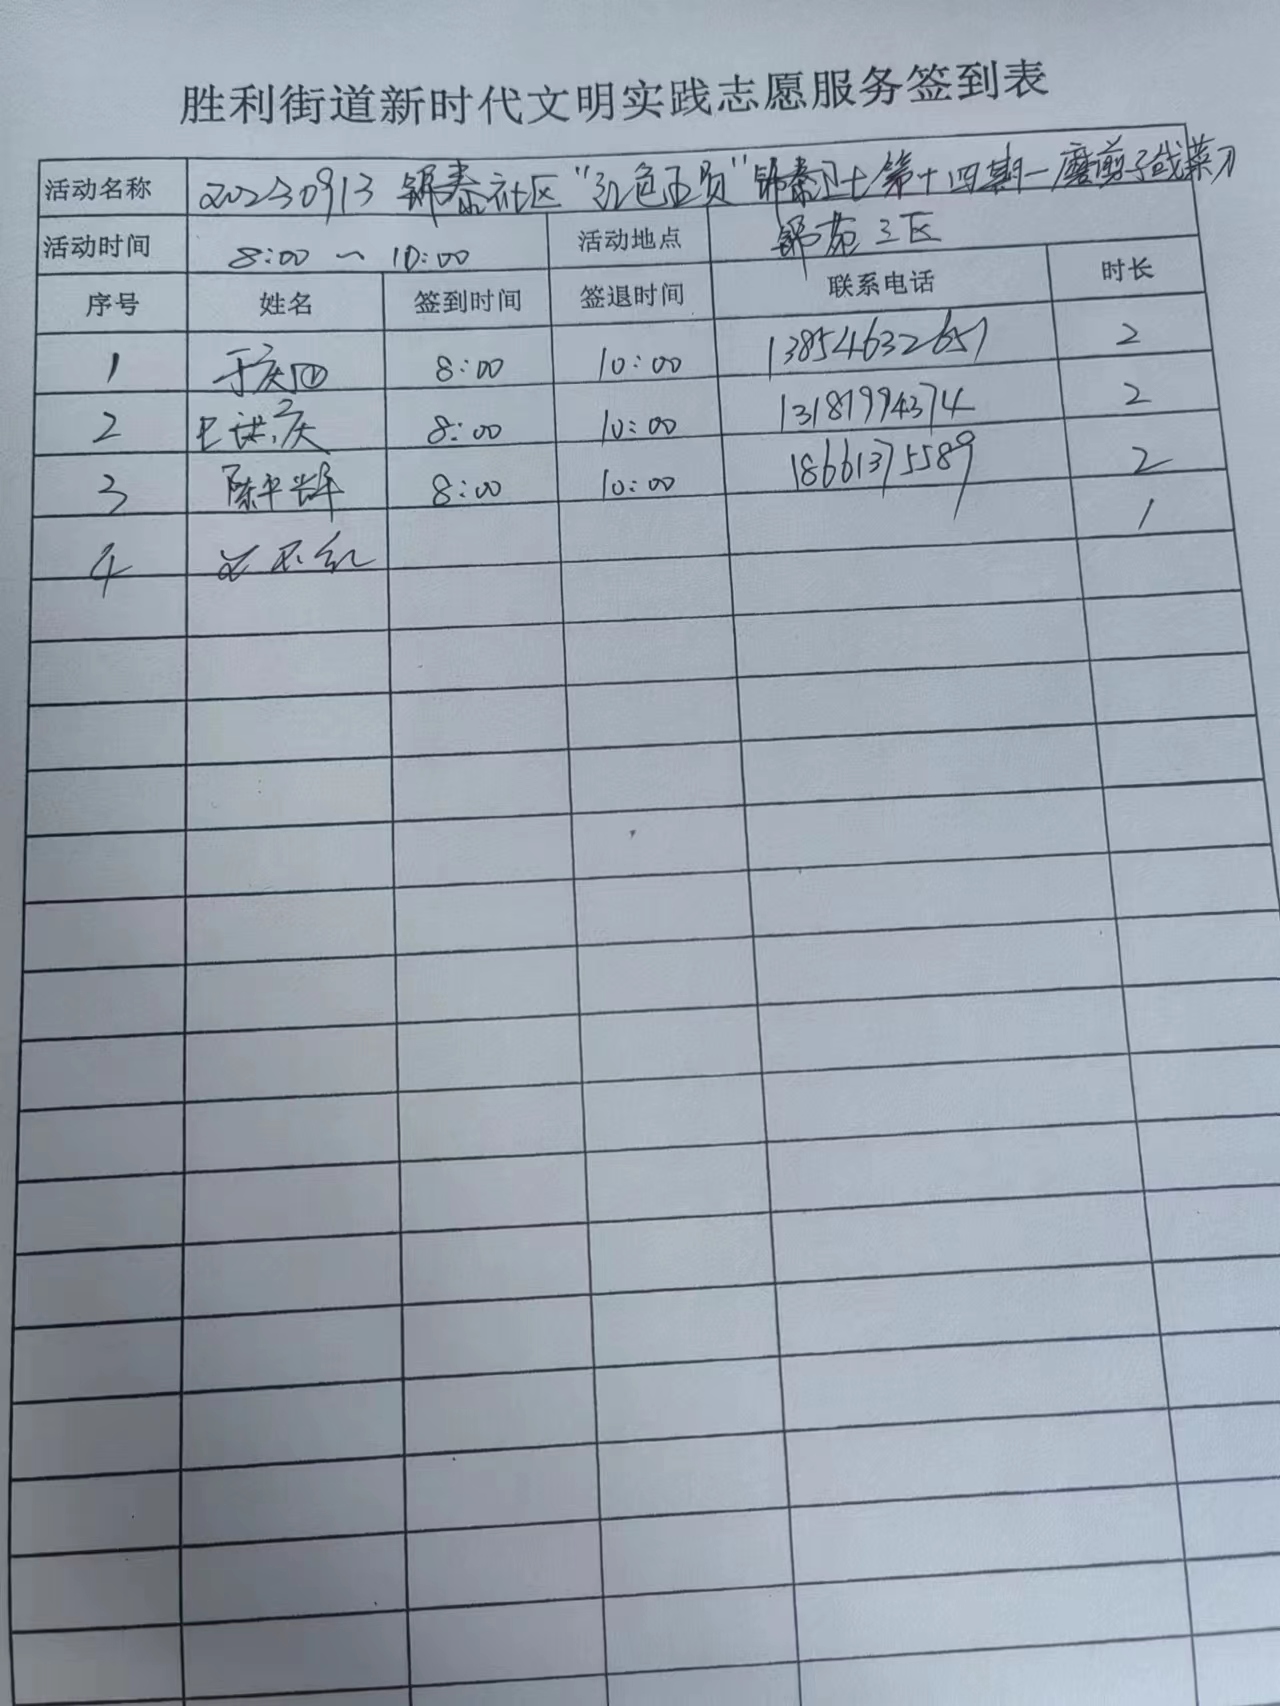 胜利街道新时代文明实践志愿服务签到表
活动名称 20230913 锦泰社区“红色卫员”锦泰卫士第十四期—磨剪子戗菜刀
活动时间 8:00 ~ 10:00 活动地点 锦苑三区
序号 姓名 签到时间 签退时间 联系电话 时长
1 8:00 10:00 13854632657 2
2 8:00 10:00 13181994374 2
3 陈平辉 8:00 10:00 18661375589 2
4 1